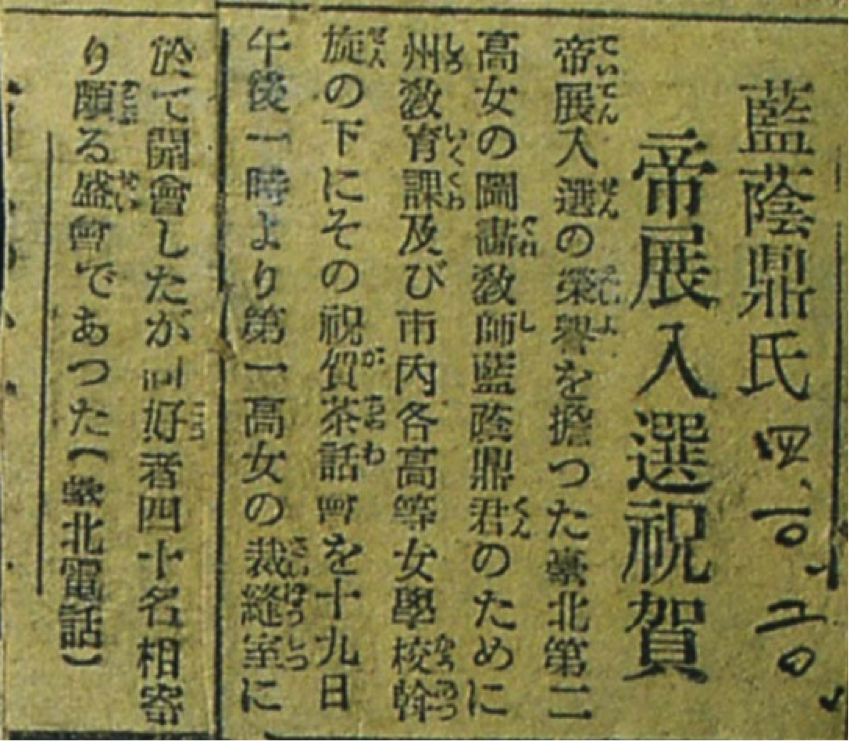 藍蔭鼎氏 四、一〇、二〇、
帝展入選祝賀
帝展入選の榮譽を擔つた臺北第二
高女の圖畵敎師藍蔭鼎君のために
州敎育課及び市內各高等女學校斡
旋の下にその祝賀茶話會を十九日
午後一時より第一高女の裁縫室に
於て開會したが同好者四十名相寄
り頗る盛會であつた(臺北電話)